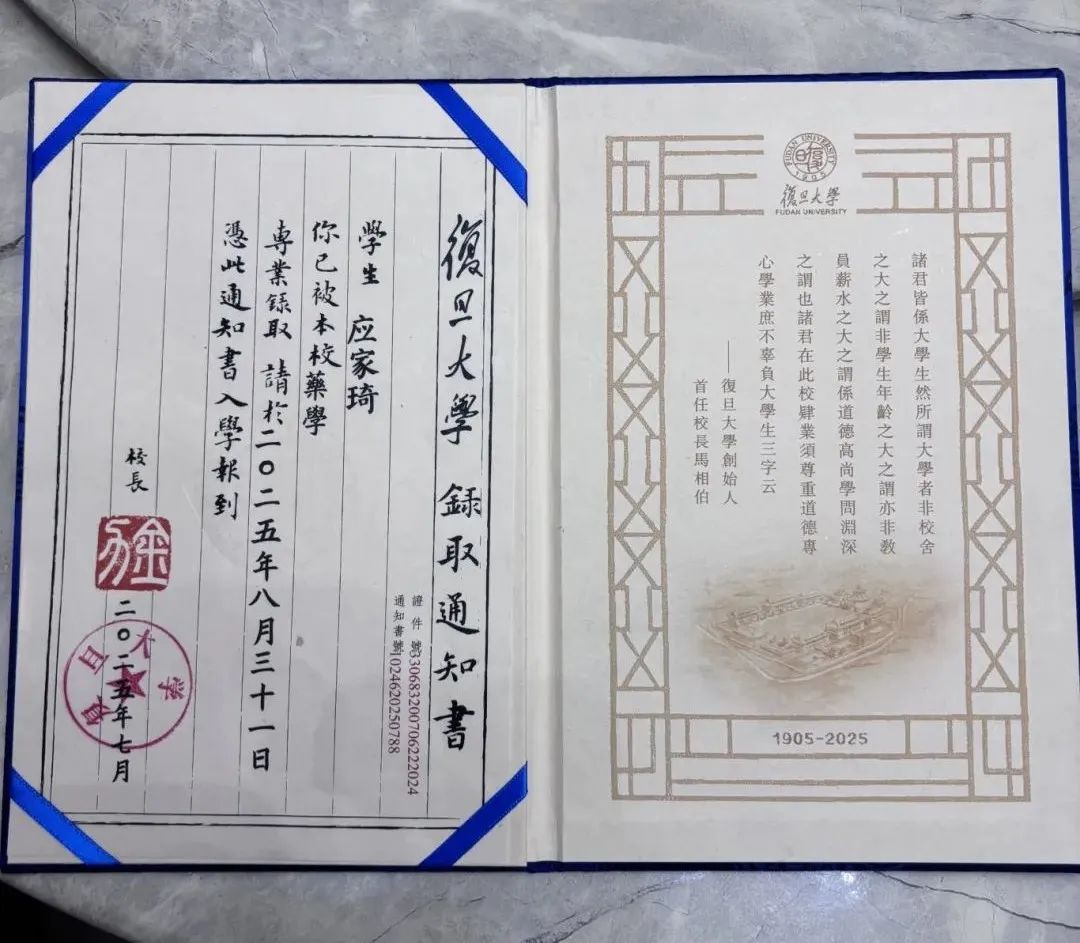 復旦大學 錄取通知書
證件號330683200706222024
通知書號1024620250788
學生 应家琦
你已被本校藥學
専業錄取 請於二〇二五年八月三十一日
憑此通知書入學報到
校長
金力
二〇二五年七月
復旦大學
FUDAN UNIVERSITY
1905
復旦大學
FUDAN UNIVERSITY
諸君皆係大學生然所謂大學者非校舍
之大之謂非學生年齡之大之謂亦非教
員薪水之大之謂係道德高尚學問淵深
之謂也諸君在此校肄業須尊重道德專
心學業庶不辜負大學生三字云
——復旦大學創始人
首任校長馬相伯
1905-2025